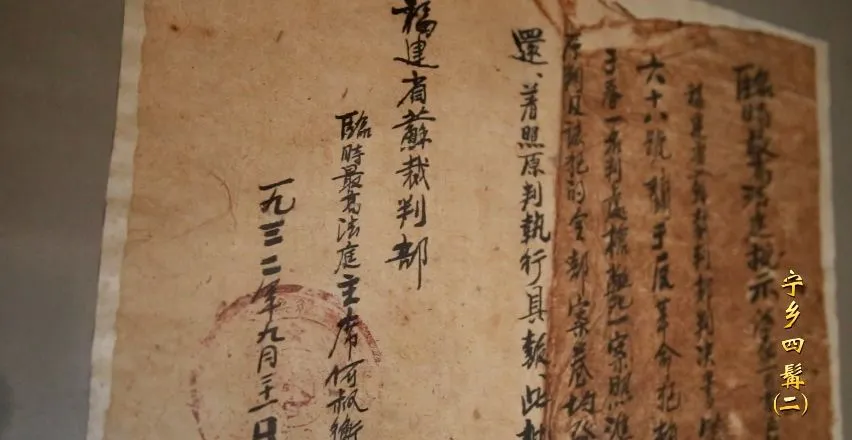 臨時最高法庭批示
福建省蘇裁判部判決書
六十八號關于反革命犯
一名判處槍斃一案照准
原判及該犯的全部案卷均發
還、着照原判執行具報此批
福建省蘇裁判部
臨時最高法庭主席何叔衡
一九三二年九月二十一日
宁乡四髯
(二)